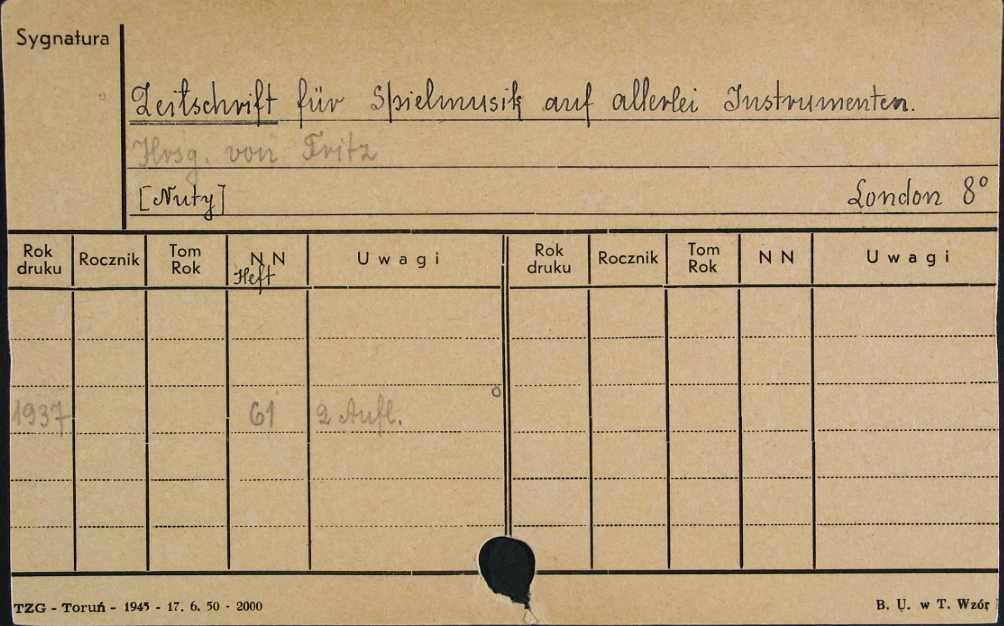 Sygnatura
Zeitschrift für Spielmusik auf allerlei Instrumenten.
Hrsg. von Fritz
[Nuty] London 8°
Rok druku Rocznik Tom Rok NN Uwagi Rok druku Rocznik Tom Rok NN Uwagi
Heft
1937 61 2 Aufl.
TZG - Toruń - 1945 - 17. 6. 50 - 2000 B. U. w T. Wzór